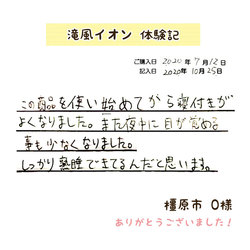 滝風イオン 体験記
ご購入日 2020年7月12日
記入日 2020年10月25日
この商品を使い始めてから寝付きが
よくなりました。また夜中に目が覚める
事も少なくなりました。
しっかり熟睡できてるんだと思います。
橿原市 O様
ありがとうございました！